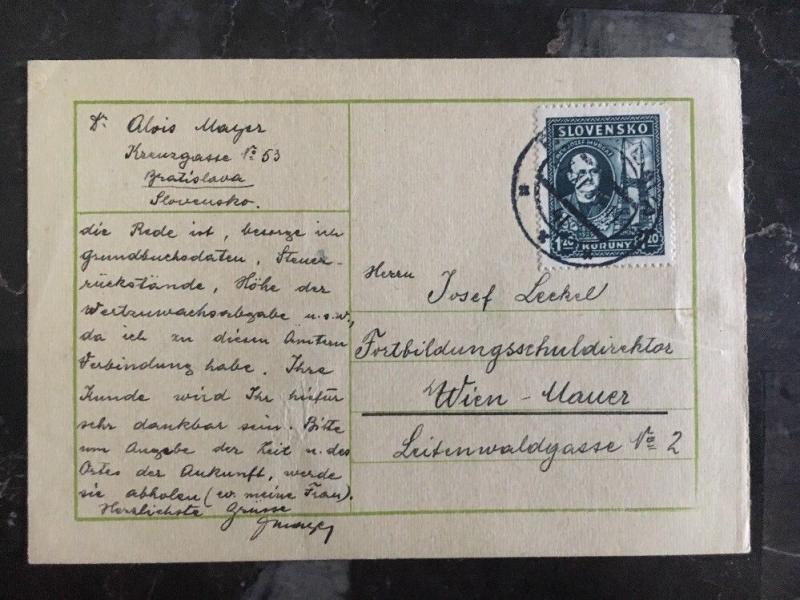 Dr. Alois Mayer
Kreuzgasse No 53
Bratislava
Slovensko.
die Rede ist, besorge ich
grundbuchsdaten, Steuer-
rückstände, Höhe der
Wertzuwachsabgabe u.s.w.,
da ich zu diesen Ämtern
Verbindung habe. Ihre
Kunde wird Ihr hiefür
sehr dankbar sein. Bitte
um Angabe der Zeit u. des
Ortes der Ankunft, werde
sie abholen (ev. meine Frau).
Herzlichste Grüsse
SLOVENSKO
1.20 KORUNY 1.20
Herrn
Josef Leckel
Fortbildungsschuldirektor
Wien - Mauer
Leitenwaldgasse No 2